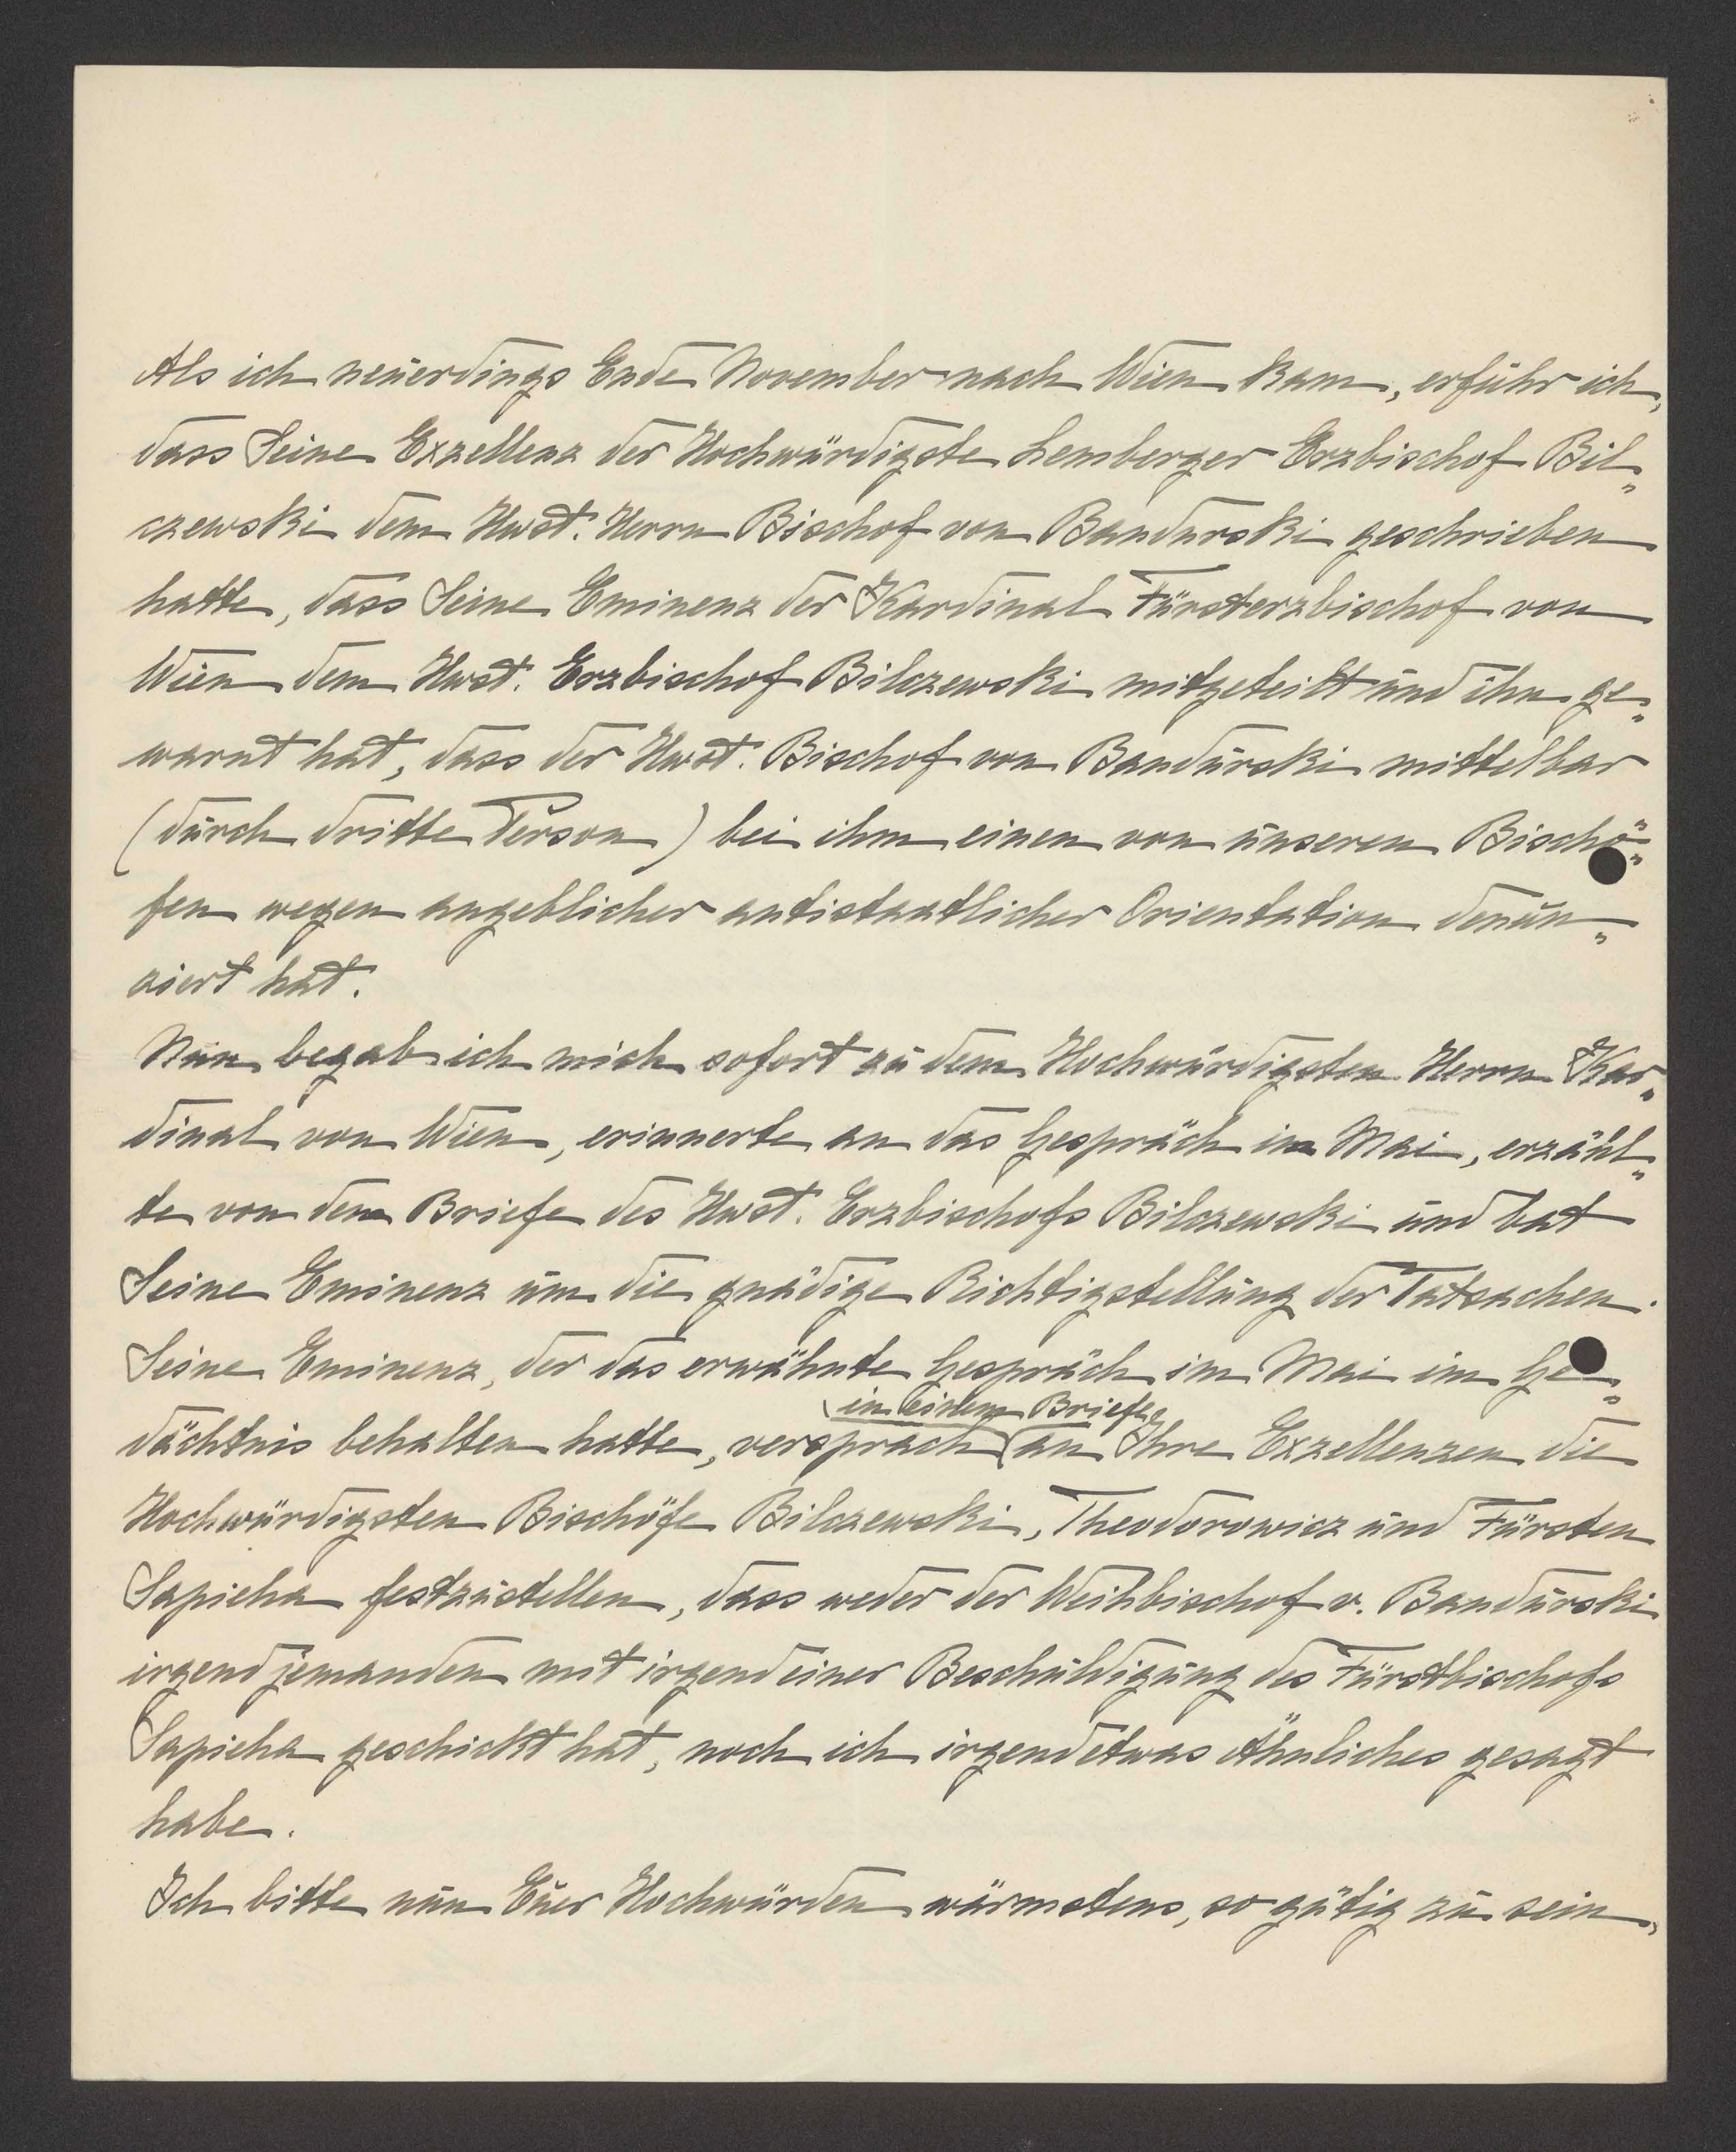 Als ich neuerdings Ende November nach Wien kam, erfuhr ich,
dass Seine Exzellenz der Hochwürdigste Lemberger Erzbischof Bil„
czewski dem Hwst. Herrn Bischof von Bandurski geschrieben
hatte, dass Seine Eminenz der Kardinal Fürsterzbischof von
Wien dem Hwst. Erzbischof Bilczewski mitgeteilt und ihn ge„
warnt hat, dass der Hwst. Bischof von Bandurski mittelbar
(durch dritte Person) bei ihm einen von unseren Bischö„
fen wegen angeblicher antistaatlicher Orientation denun„
ziert hat.
Nun begab ich mich sofort zu dem Hochwürdigsten Herrn Kar„
dinal von Wien, erinnerte an das Gespräch im Mai, erzähl„
te von dem Briefe des Hwst. Erzbischofs Bilczewski und bat
Seine Eminenz um die gnädige Richtigstellung der Tatsachen.
Seine Eminenz, der das erwähnte Gespräch im Mai im Ge„
in einem Briefe
dächtnis behalten hatte, versprach an Ihre Exzellenzen die
Hochwürdigsten Bischöfe Bilczewski, Theodorowicz und Fürsten
Sapieha festzustellen, dass weder der Weihbischof v. Bandurski
irgend jemanden mit irgend einer Beschuldigung des Fürstbischofs
Sapieha geschickt hat, noch ich irgend etwas Ähnliches gesagt
habe.
Ich bitte nun Euer Hochwürden wärmstens, so gütig zu sein,